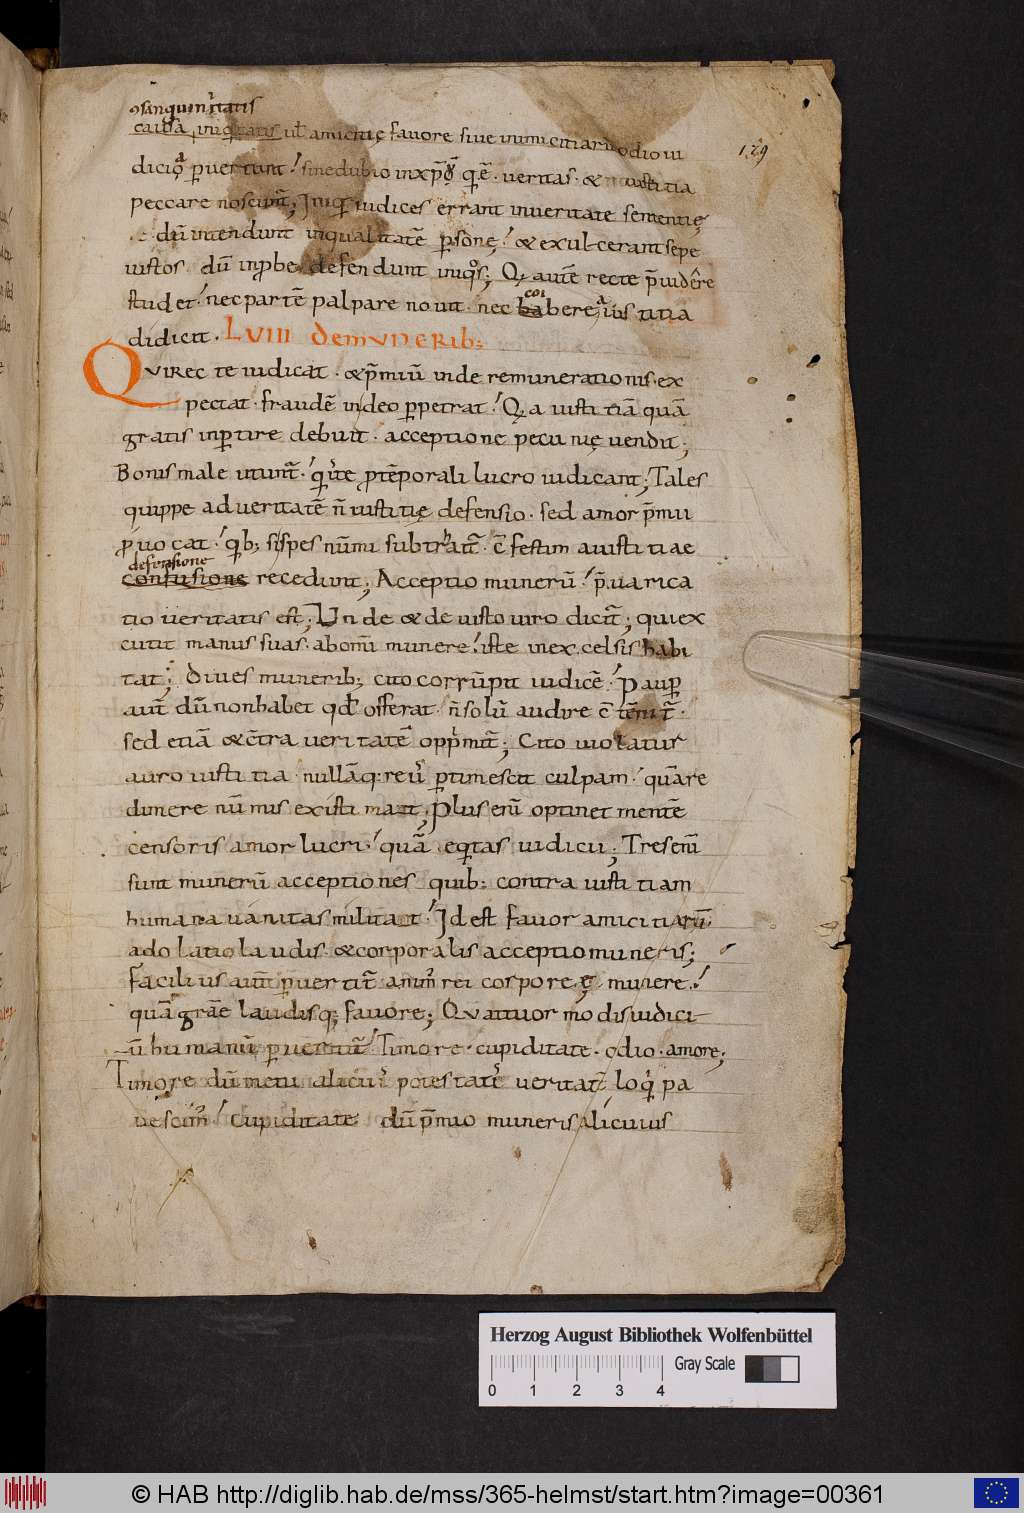 ↄsanguinitatis
causa iniquitatis ul amicitię fauore siue inimicitiarū odio iu
129
dicia ꝑuertunt sinedubio inxp̄m q̄ ē ueritas & iustitia
peccare noscunt̄; Iniqi iudices errant inueritate sententię
dū intendunt inqualitatē ꝑsonę & exulcerant sepe
iustos dū inꝓbe defendunt iniqos; Q aut̄ recte p̄siderē
studet nec partē palpare nouit nec
coi
habere a iustitia
didicit . LVIII DE MVNERIB;
QVI RECTE iudicat . &p̄miū inde remunerationis ex
pectat . fraudē indeo ꝑpetrat Q a iustitiā quā
gratis inꝑtire debuit . acceptione pecunię uendit;
Bonis male utunt̄ . q iuste ꝓ tēporali lucro iudicant; Tales
quippe ad ueritatē n̄ iustitię defensio . sed amor p̄mii
ꝓuocat . qb; si spes nūmi subtrait̄ . c̄ festim a iustitiae
defensione
confusione recedunt; Acceptio munerū p̄uarica
tio ueritatis est; Unde & de iusto uiro dicit̄; qui ex
cutit manus suas . ab omi munere iste inexcelsis habi
tat; Diues munerib; cito corrūpit iudicē . Pauꝑ
aut̄ dū non habet qd offerat n̄ solū audire c̄tēnit̄ .
sed etiā & c̄tra ueritatē opp̄mit̄; Cito uiolatur
auro iustitia nullāq: reus ꝑtimescit culpam quā re
dimere nūmis existimat; Plus enī optinet mentē
censoris amor lucri quā eqitas iudicii; Tres enī
sunt munerū acceptiones quib: contra iustitiam
humana uanitas militat Id est fauor amicitiarū
adolatio laudis & corporalis acceptio muneris;
Facilius aut̄ ꝑuertit̄ animus rei corporeę munere
quā grāe laudisq; fauore; Quattuor modis iudici
ū humanū ꝑuertit̄ Timore . cupiditate . odio . amore;
Timore dū metu alicui potestatis ueritatē loqi pa
uescim cupiditate dū p̄mio muneris alicuius
Herzog August Bibliothek Wolfenbüttel
Gray Scale
0 1 2 3 4
© HAB http://diglib.hab.de/mss/365-helmst/start.htm?image=00361